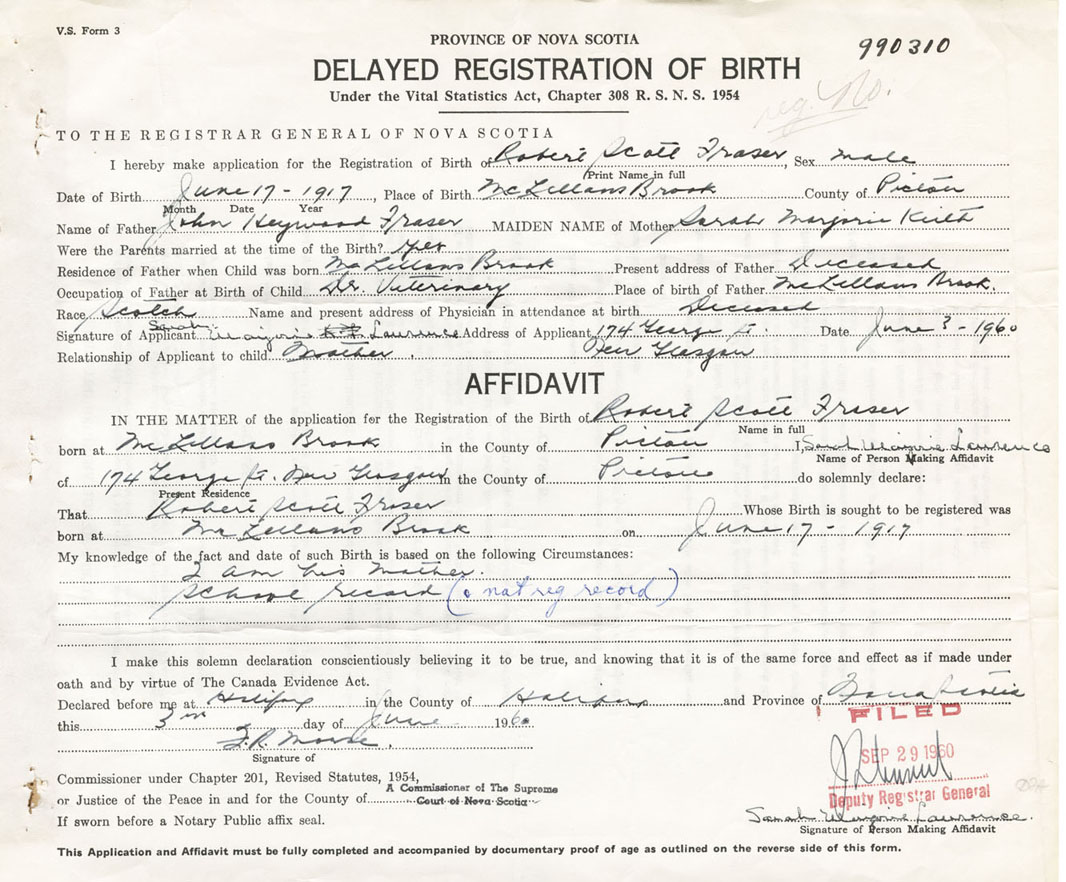 V.S. Form 3
PROVINCE OF NOVA SCOTIA
990310
DELAYED REGISTRATION OF BIRTH
Under the Vital Statistics Act, Chapter 308 R. S. N. S. 1954
reg. No.
TO THE REGISTRAR GENERAL OF NOVA SCOTIA
I hereby make application for the Registration of Birth of Robert Scott Fraser, Sex male
Print Name in full
Date of Birth June 17 - 1917, Place of Birth McLellans Brook County of Pictou
Month Date Year
Name of Father John Heywood Fraser MAIDEN NAME of Mother Sarah Marjorie Keith
Were the Parents married at the time of the Birth? yes
Residence of Father when Child was born McLellans Brook Present address of Father Deceased
Occupation of Father at Birth of Child Dr. Veterinary Place of birth of Father McLellans Brook.
Race Scotch Name and present address of Physician in attendance at birth Deceased
Signature of Applicant Sarah Marjorie Lawrence Address of Applicant 174 George St. Date June 3 - 1960
Relationship of Applicant to child Mother. New Glasgow
AFFIDAVIT
IN THE MATTER of the application for the Registration of the Birth of Robert Scott Fraser
Name in full
born at McLellans Brook in the County of Pictou I, Sarah Marjorie Lawrence
Name of Person Making Affidavit
of 174 George St. New Glasgow in the County of Pictou do solemnly declare:
Present Residence
That Robert Scott Fraser Whose Birth is sought to be registered was
born at McLellans Brook on June 17 - 1917
My knowledge of the fact and date of such Birth is based on the following Circumstances:
I am his Mother.
School record (not reg record)
I make this solemn declaration conscientiously believing it to be true, and knowing that it is of the same force and effect as if made under
oath and by virtue of The Canada Evidence Act.
Declared before me at Halifax in the County of Halifax and Province of Nova Scotia
this 3rd day of June 1960
FILED
SEP 29 1960
Signature of
Commissioner under Chapter 201, Revised Statutes, 1954,
A Commissioner of The Supreme
or Justice of the Peace in and for the County of Court of Nova Scotia
Deputy Registrar General
If sworn before a Notary Public affix seal.
Sarah Marjorie Lawrence.
Signature of Person Making Affidavit
This Application and Affidavit must be fully completed and accompanied by documentary proof of age as outlined on the reverse side of this form.